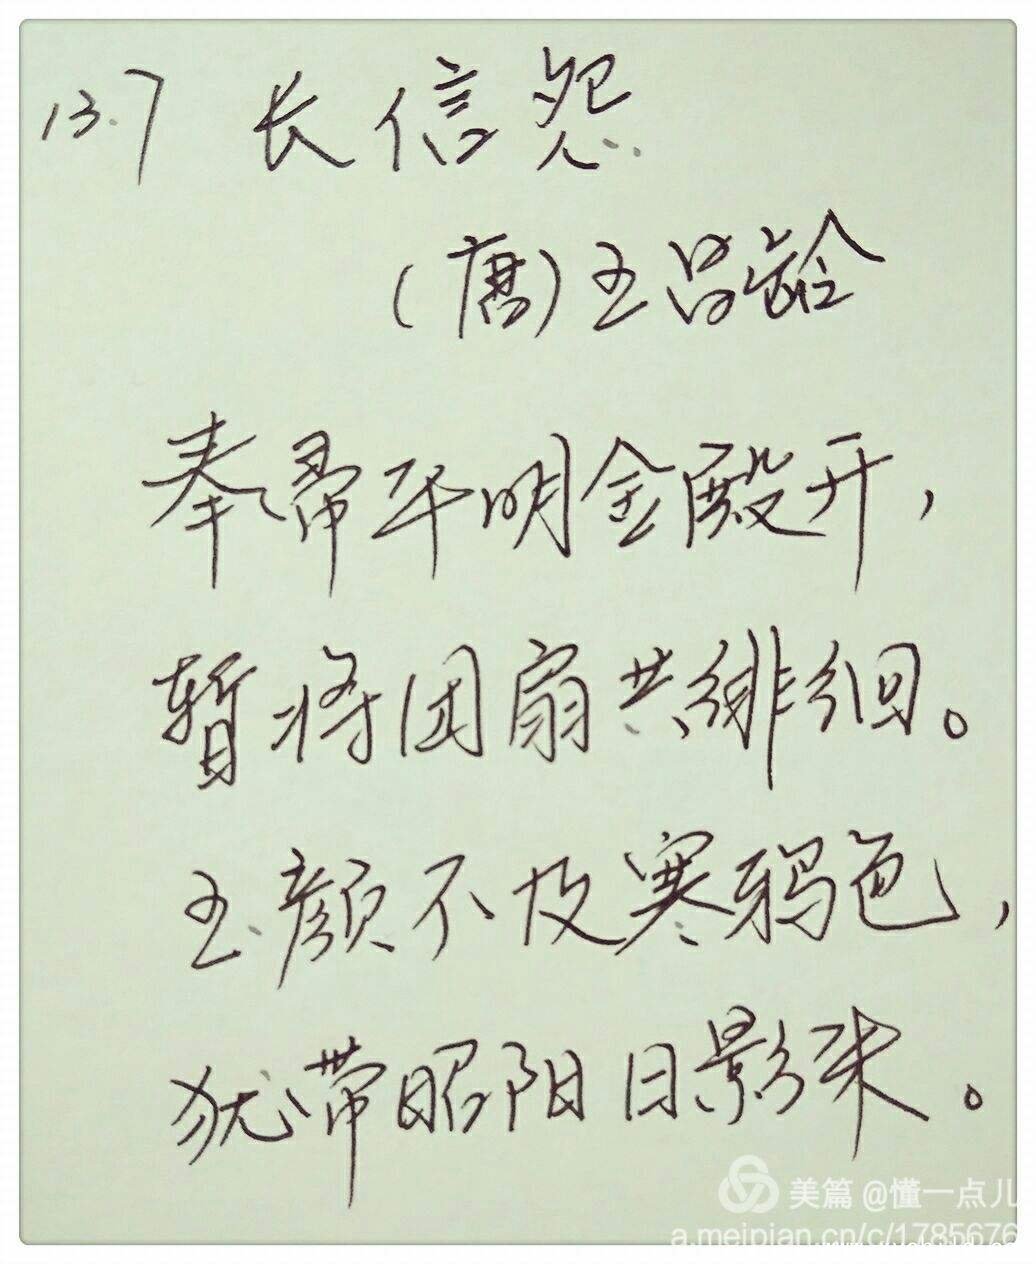 13.7 长信怨
(唐)王昌龄
奉帚平明金殿开，
暂将团扇共徘徊。
玉颜不及寒鸦色，
犹带昭阳日影来。
美篇 @懂一点儿
a.meipian.cn/c/1785676